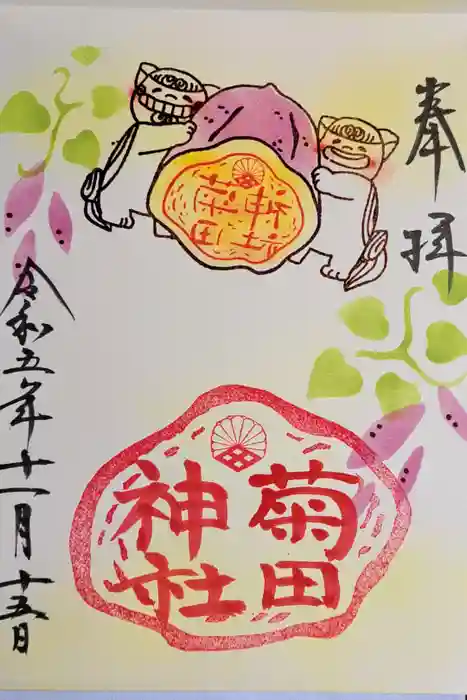 奉拝
菊田
神社
菊田
神社
令和五年十一月十五日